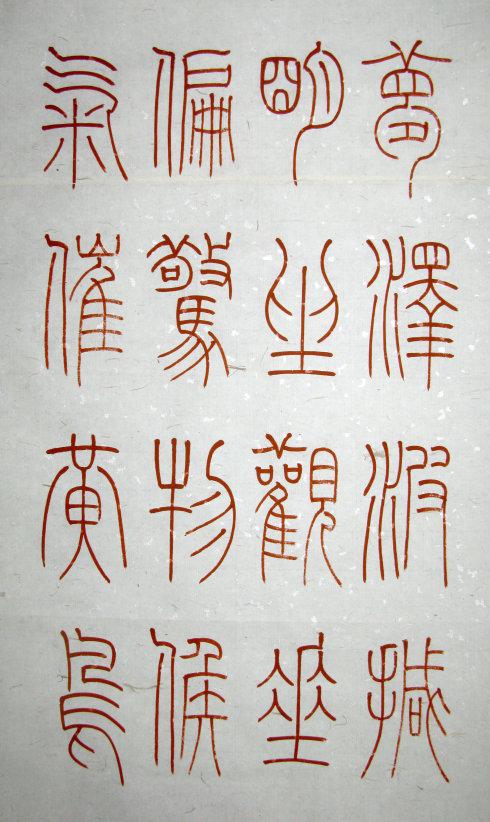 夢澤波撼
明坐觀垂
偏驚物候
氣催黃鳥